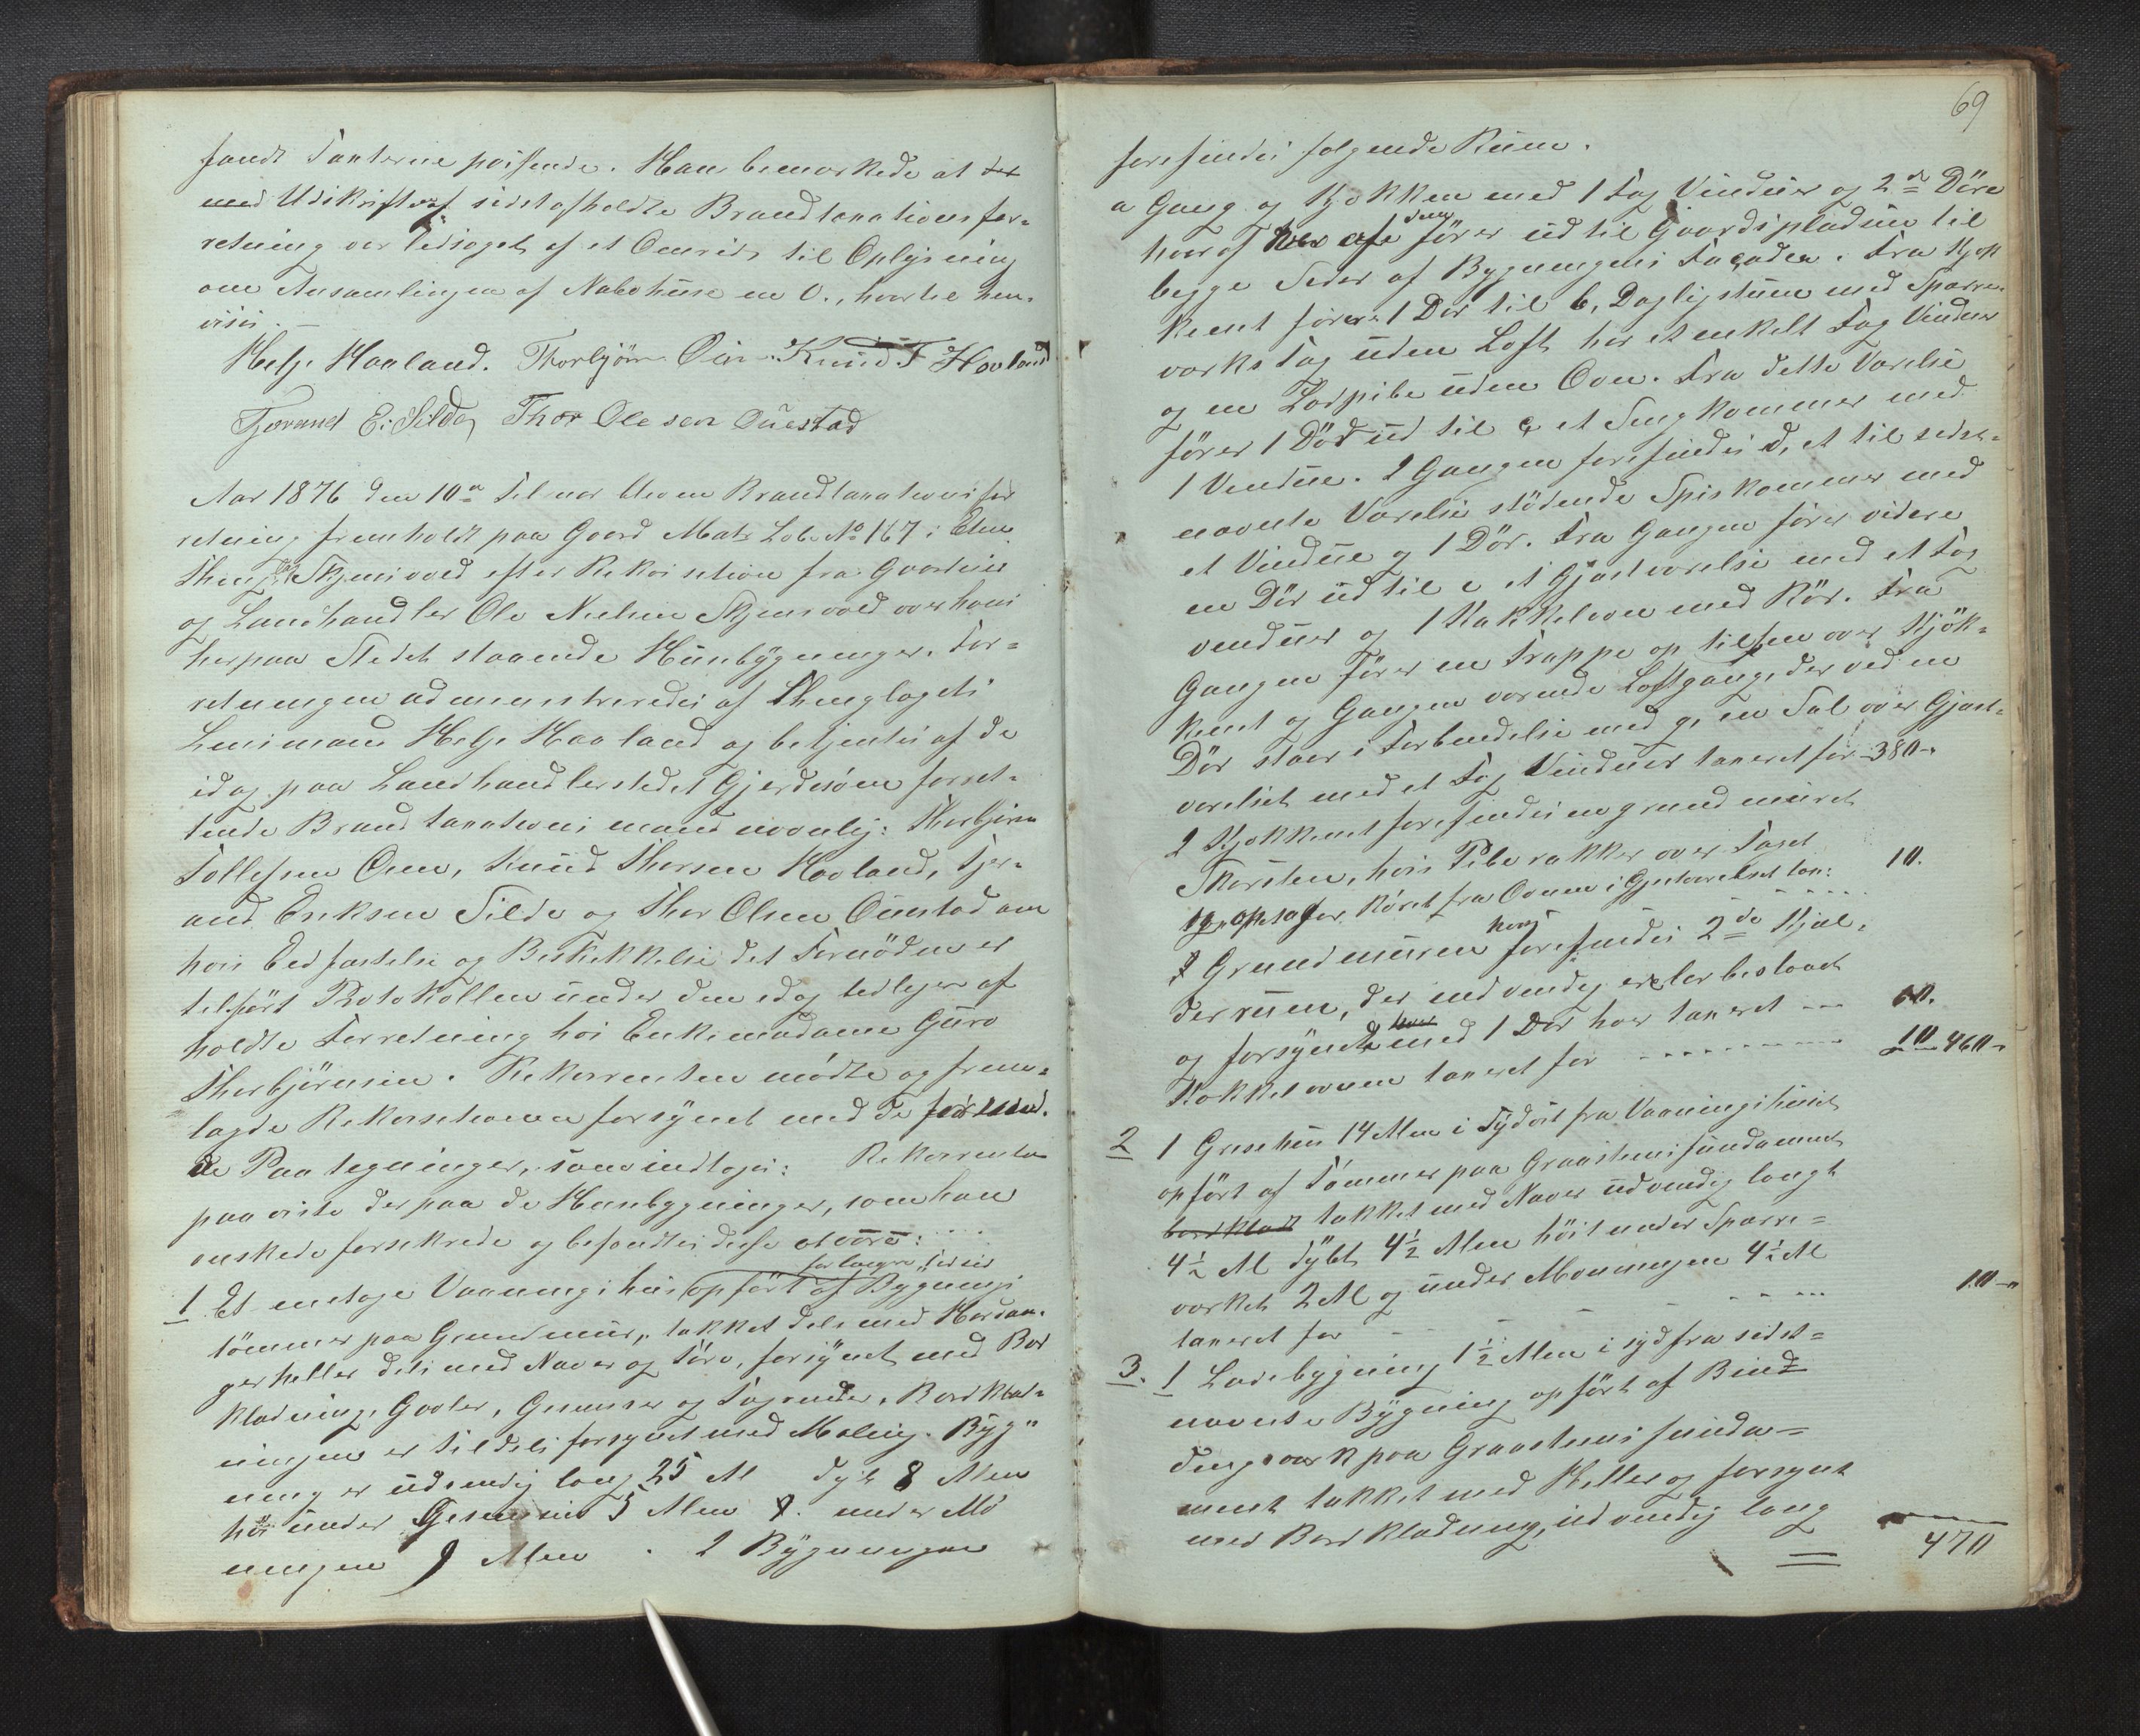 fandt Taxterne passende. Han bemærkede at det
med Udskrift af sidst afholdte Brandtaxationsfor-
retning var ledsaget af et Omrids til Oplysning
om Ansamlingen af Nabohuse m. v., hvortil hen-
vises. —
Helje Haaland. Thorbjörn Oen. Knud T Haaland
Tjerand E. Silde, Thor Olesen Øuestad
Aar 1876 den 10de Februar blev en Brandtaxationsfor
retning fremholdt paa Gaard Matr. Löbe No 167 i Etne
Thinglag Skjensvold efter Rekvisition fra Gaardeier
og Landhandler Ole Nielsen Skjensvold over hans
herpaa Stedet staaende Huusbygninger. For-
retningen administreredes af Thinglagets
Lensmand Helje Haaland og betjentes af de
idag paa Landhandlerstedet Gjerdesöen forret-
tende Brandtaxationsmænd navnlig: Thorbjörn
Tollefsen Oen, Knud Thorsen Haaland, Tjer-
and Eriksen Silde og Thor Olsen Øuestad om
hvis Edfæstelse og Beskikkelse det Fornödne er
tilfört Protokollen under den idag tidligere af
holdte Forretning hos Enkemadame Guro
Thorbjörnsen. Rekvirenten mödte og frem-
lagde Rekvisitionen forsynet med de
de Paategninger, som indtages: Rekvirenten
paaviste derpaa de Huusbygninger, som han
önskede forsikrede og befandtes disse at være:
for længere Tid siden
1 Et enetages Vaaningshus opfört af Bygnings
tömmer paa Grundmur, takket dels med Hardan-
gerheller dels med Næver og Törv, forsynet med Bord
klædning, Gavler, Gesimser og Tagrender. Bordklæd-
ningen er tildels forsynet med Maling. Byg-
ning er udvendig lang 25 Al dyb 8 Alen
höi under Gesimsen 5 Alen og under Mö
ningen 9 Alen. I Bygningen
69
forefindes fölgende Rum.
a Gang og Kjökken med 1 Fag Vinduer og 2de Döre
hvoraf den förer ud til Gaardspladsen til
begge Sider af Bygningens Facader. Fra Kjök
kenet förer 1 Dör til b, Dagligstuen med Sparre-
værks Tag uden Loft har et enkelt Fag Vinduer
og en Lerpibe uden Ovn. Fra dette Værelse
förer 1 Dör ud til c et Sengkammer med
1 Vindue. I Gangen forefindes d, et til sidst-
nævnte Værelse stödende Spiskammer med
et Vindue og 1 Dör. Fra Gangen förer videre
en Dör ud til e et Gjæstværelse med et Fag
vinduer og 1 Kakkelovn med Rör. Fra
Gangen förer en Trappe op til f en over Kjök-
kenet og Gangen værende Loftgang, der ved en
Dör staar i Forbindelse med g, en Sal over Gjæst-
værelset med et Fag Vinduer taxeret for — 380 —
I Kjökkenet forefindes en grundmuret
Skorsten, hvis Pibe rækker over Taget
og optager Röret fra Ovnen i Gjestværelset tax: 10.
I Grundmuren forefindes 2de Kjel-
derrum, der indvendig er lerbeslaaet
og forsynet med 1 Dör hver taxeret --- 60.
Kakkelovnen taxeret for - - - - - 10 460 —
2 1 Grisehus 14 Alen i Sydöst fra Vaaningshuset
opfört af Tömmer paa Graastensfundament
bordklædt takket med Næver udvendig langt
4½ Al dybt 4½ Alen höit under Sparre-
værket 2 Al og under Mönningen 4½ Al
taxeret for - - - - 10 —
3. 1 Ladebygning 1½ Alen i syd fra sidst-
nævnte Bygning opfört af Bind-
dingsværk paa Graastensfunda-
ment takket med Heller og forsynet
med Bordklædning, udvendig lang
470